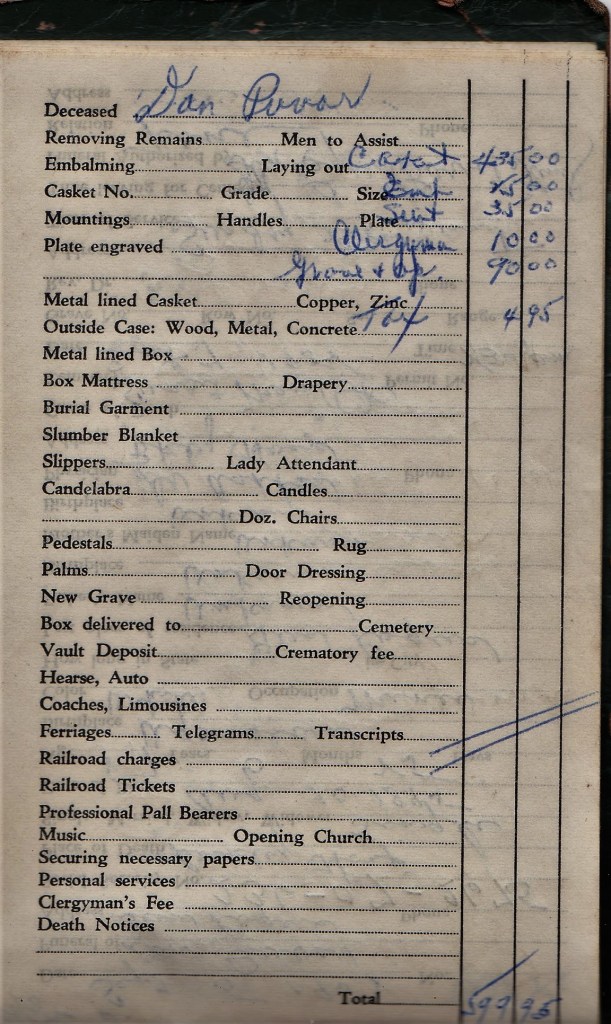 Deceased Dan Povar
Removing Remains Men to Assist
Embalming Laying out Casket 435 00
Casket No. Grade Size Emb 25 00
Mountings Handles Plate Suit 35 00
Plate engraved Clergyman 10 00
Grave + Op 90 00
Metal lined Casket Copper, Zinc
Outside Case: Wood, Metal, Concrete Tax 4 95
Metal lined Box
Box Mattress Drapery
Burial Garment
Slumber Blanket
Slippers Lady Attendant
Candelabra Candles
Doz. Chairs
Pedestals Rug
Palms Door Dressing
New Grave Reopening
Box delivered to Cemetery
Vault Deposit Crematory fee
Hearse, Auto
Coaches, Limousines
Ferriages Telegrams Transcripts
Railroad charges
Railroad Tickets
Professional Pall Bearers
Music Opening Church
Securing necessary papers
Personal services
Clergyman's Fee
Death Notices
Total 599 95